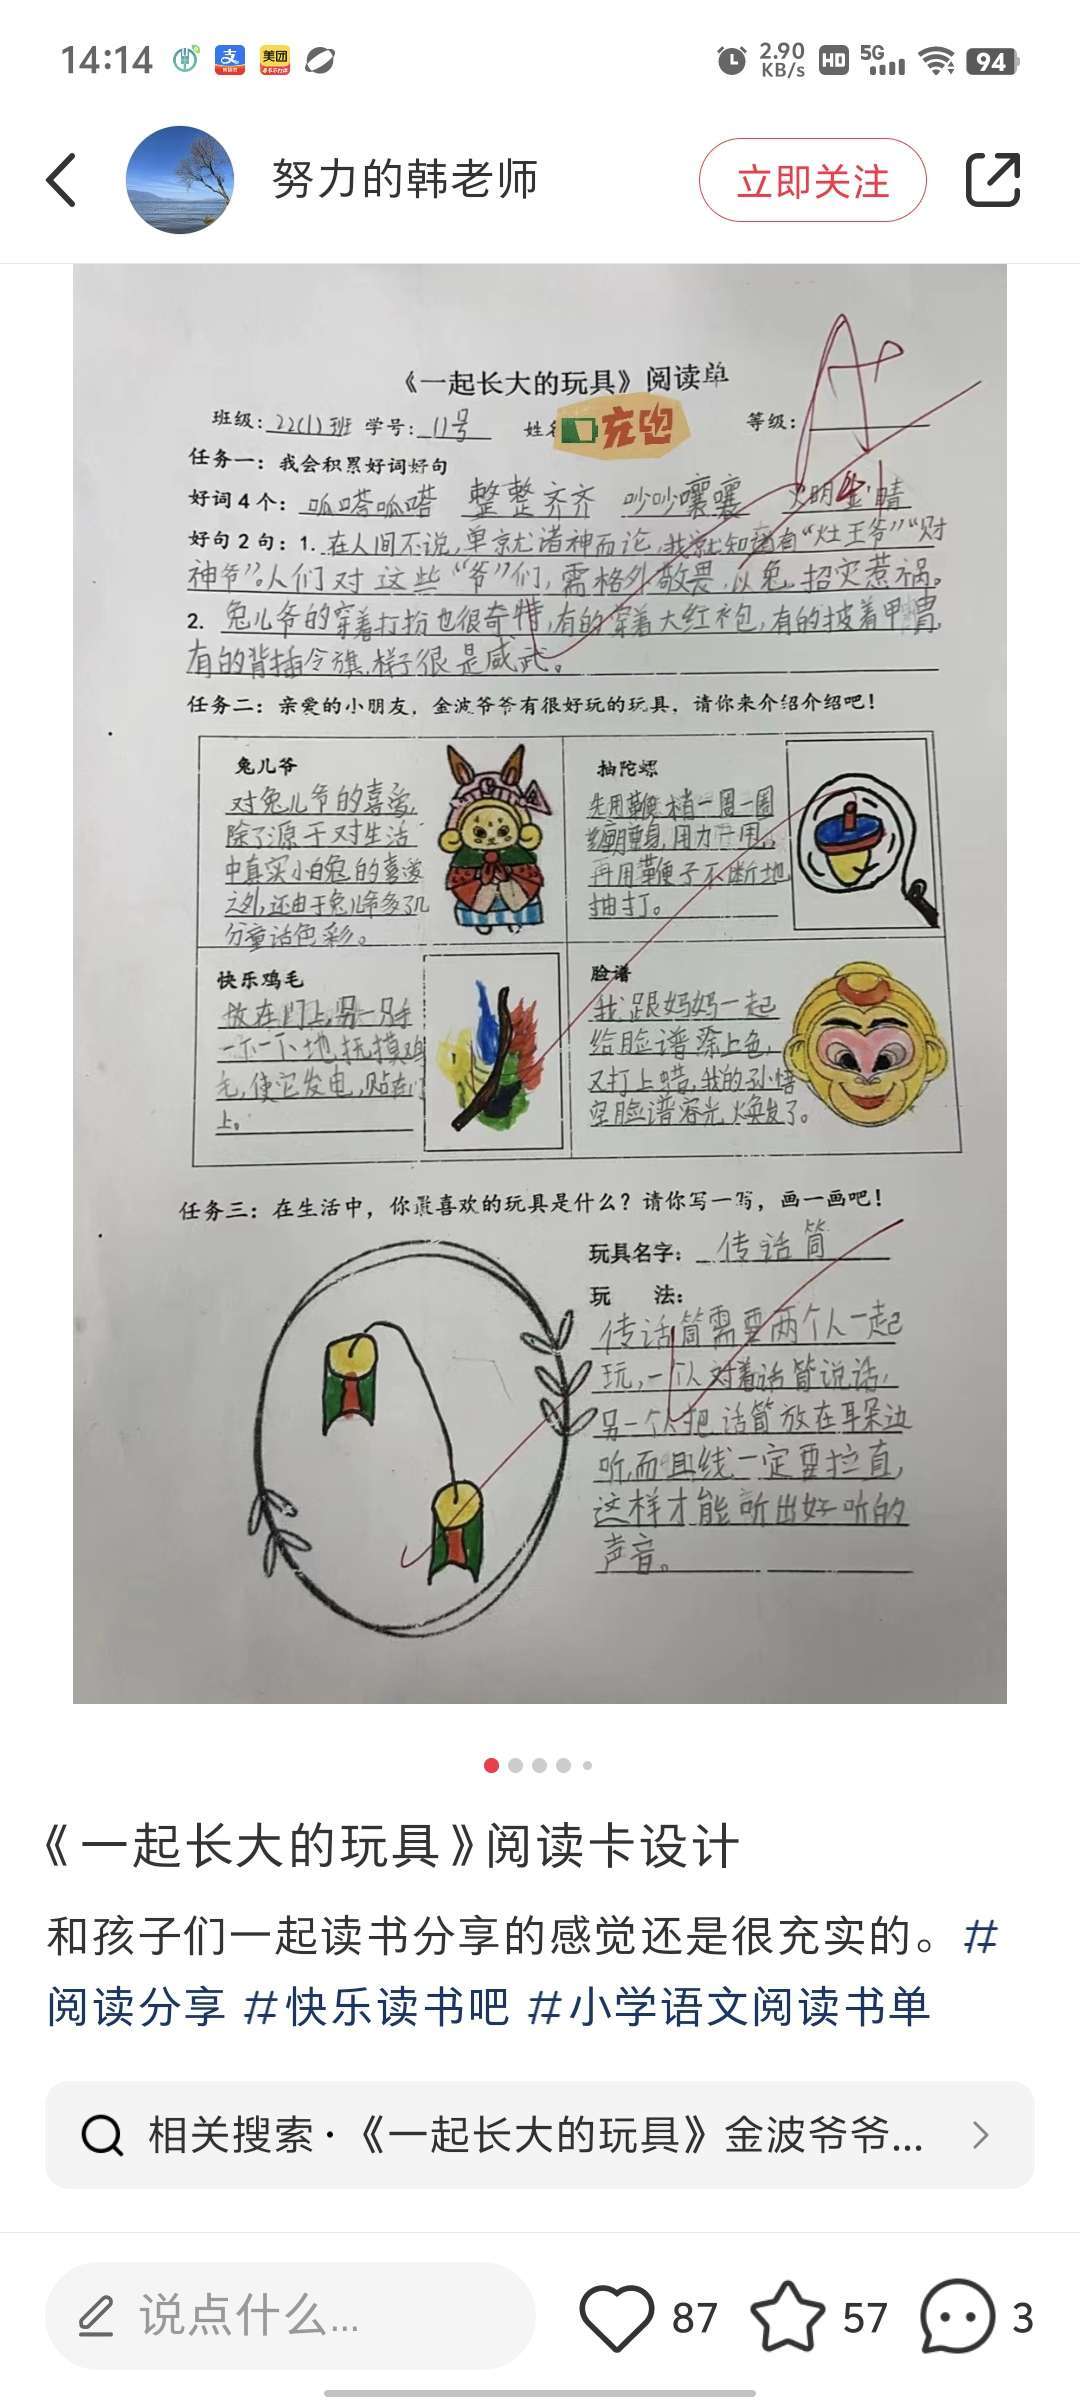 14:14
支
美团
2.90
KB/s
HD
5G
94
努力的韩老师
立即关注
《一起长大的玩具》阅读单
班级:22(1)班 学号:11号 姓名 充电 等级:
A+
任务一：我会积累好词好句
好词4个：呱嗒呱嗒 整整齐齐 吵吵嚷嚷 火明金睛
好句2句：1.在人间不说,单就诸神而论,我就知道有“灶王爷”“财
神爷”。人们对这些“爷”们,需格外敬畏,以免招灾惹祸。
2. 兔儿爷的穿着打扮也很奇特,有的穿着大红袍,有的披着甲胄,
有的背插令旗,样子很是威武。
任务二：亲爱的小朋友，金波爷爷有很好玩的玩具，请你来介绍介绍吧！
兔儿爷
对兔儿爷的喜爱,
除了源于对生活
中真实小白兔的喜爱
之外,还由于兔儿爷多了几
分童话色彩。
抽陀螺
先用鞭梢一圈一圈
用力一甩,
再用鞭子不断地
抽打。
快乐鸡毛
放在门上,另一只手
一下一下地抚摸鸡
毛,使它发电,贴在门
上。
脸谱
我跟妈妈一起
给脸谱涂上色,
又打上蜡,我的孙悟
空脸谱容光焕发了。
任务三：在生活中，你最喜欢的玩具是什么？请你写一写，画一画吧！
玩具名字：传话筒
玩 法：
传话筒需要两个人一起
玩,一个人对着话筒说话,
另一个人把话筒放在耳朵边
听,而且线一定要拉直,
这样才能听出好听的
声音。
《一起长大的玩具》阅读卡设计
和孩子们一起读书分享的感觉还是很充实的。#
阅读分享 #快乐读书吧 #小学语文阅读书单
相关搜索·《一起长大的玩具》金波爷爷...
说点什么...
87
57
3